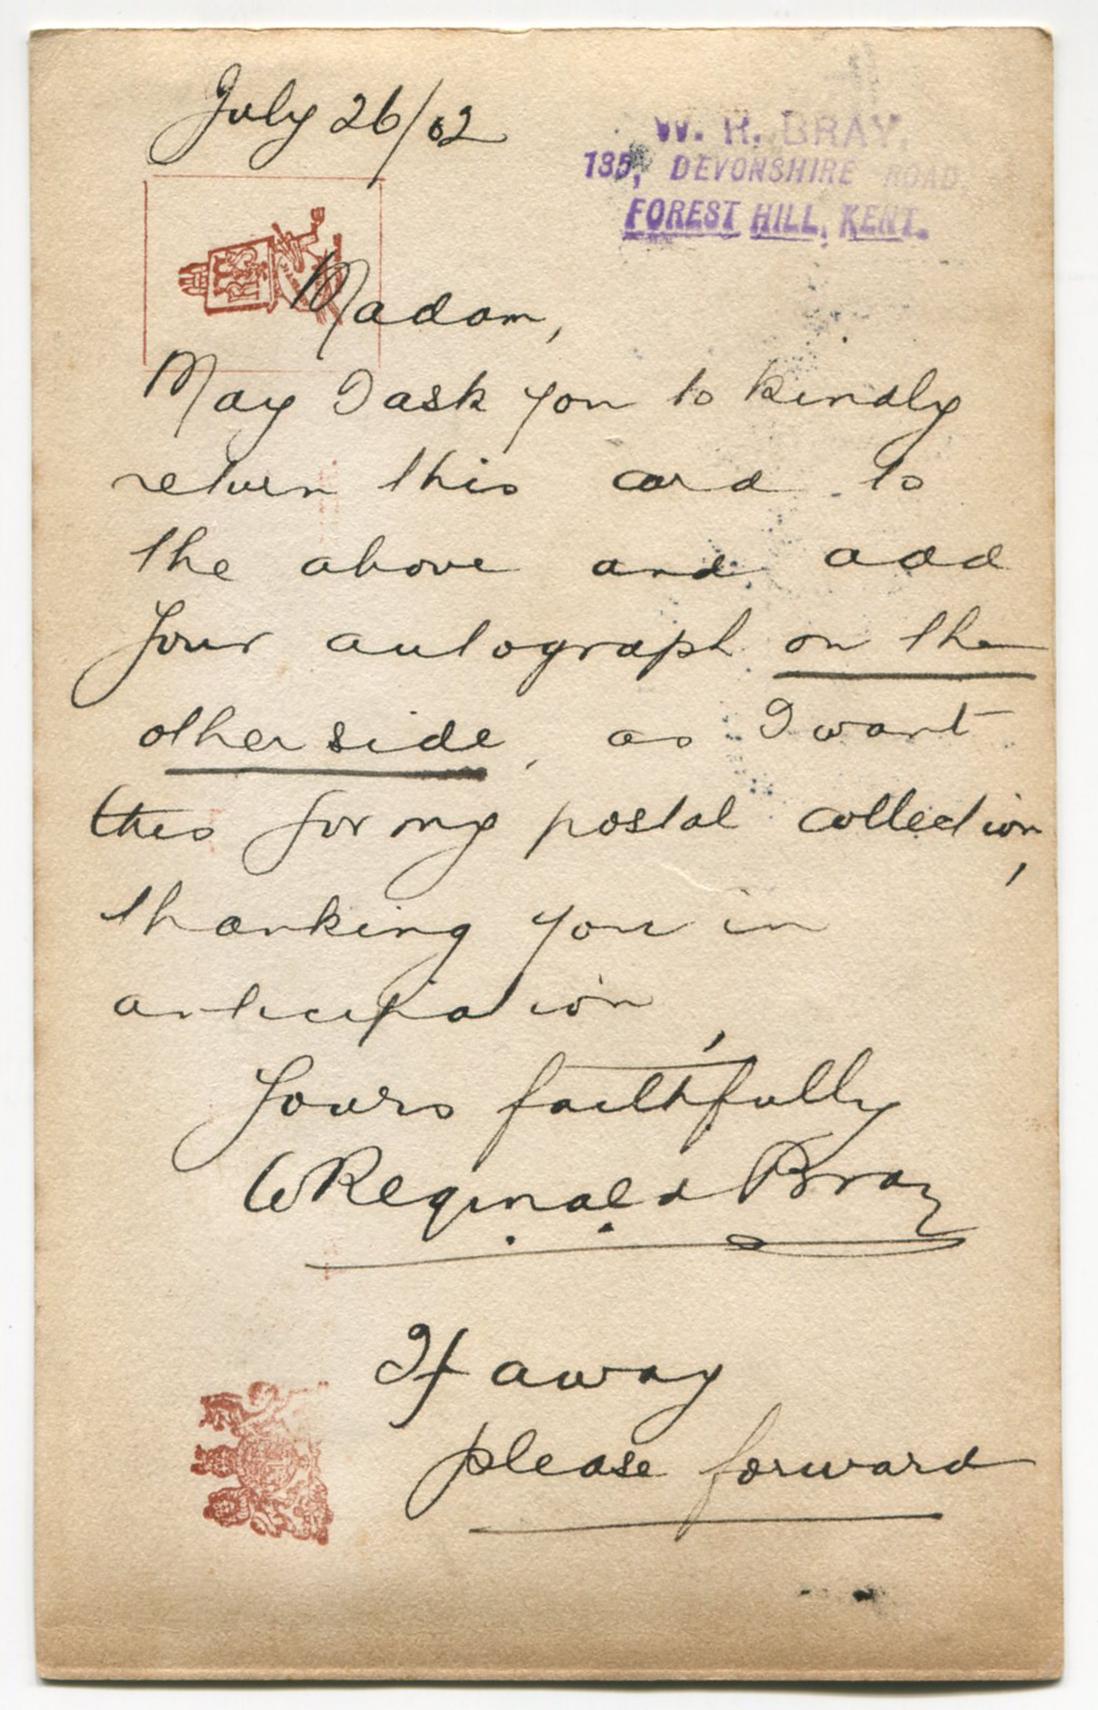 July 26/02
W. R. BRAY,
135, DEVONSHIRE ROAD,
FOREST HILL, KENT.
Madam,
May I ask you to kindly
return this card to
the above and add
your autograph on the
other side, as I want
this for my postal collection,
thanking you in
anticipation,
Yours faithfully
W Reginald Bray
If away
please forward